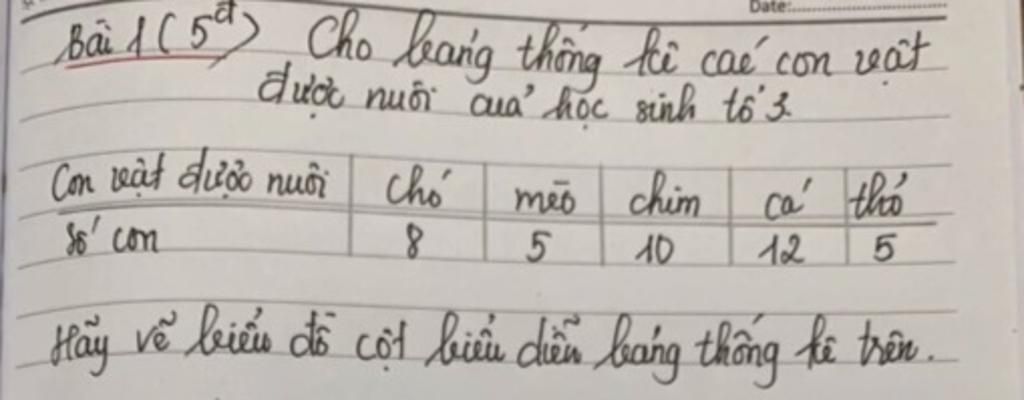 Date:
Bài 1 (5đ) Cho bảng thống kê các con vật
được nuôi của học sinh tổ 3.
Con vật được nuôi chó mèo chim cá thỏ
Số con 8 5 10 12 5
Hãy vẽ biểu đồ cột biểu diễn bảng thống kê trên.